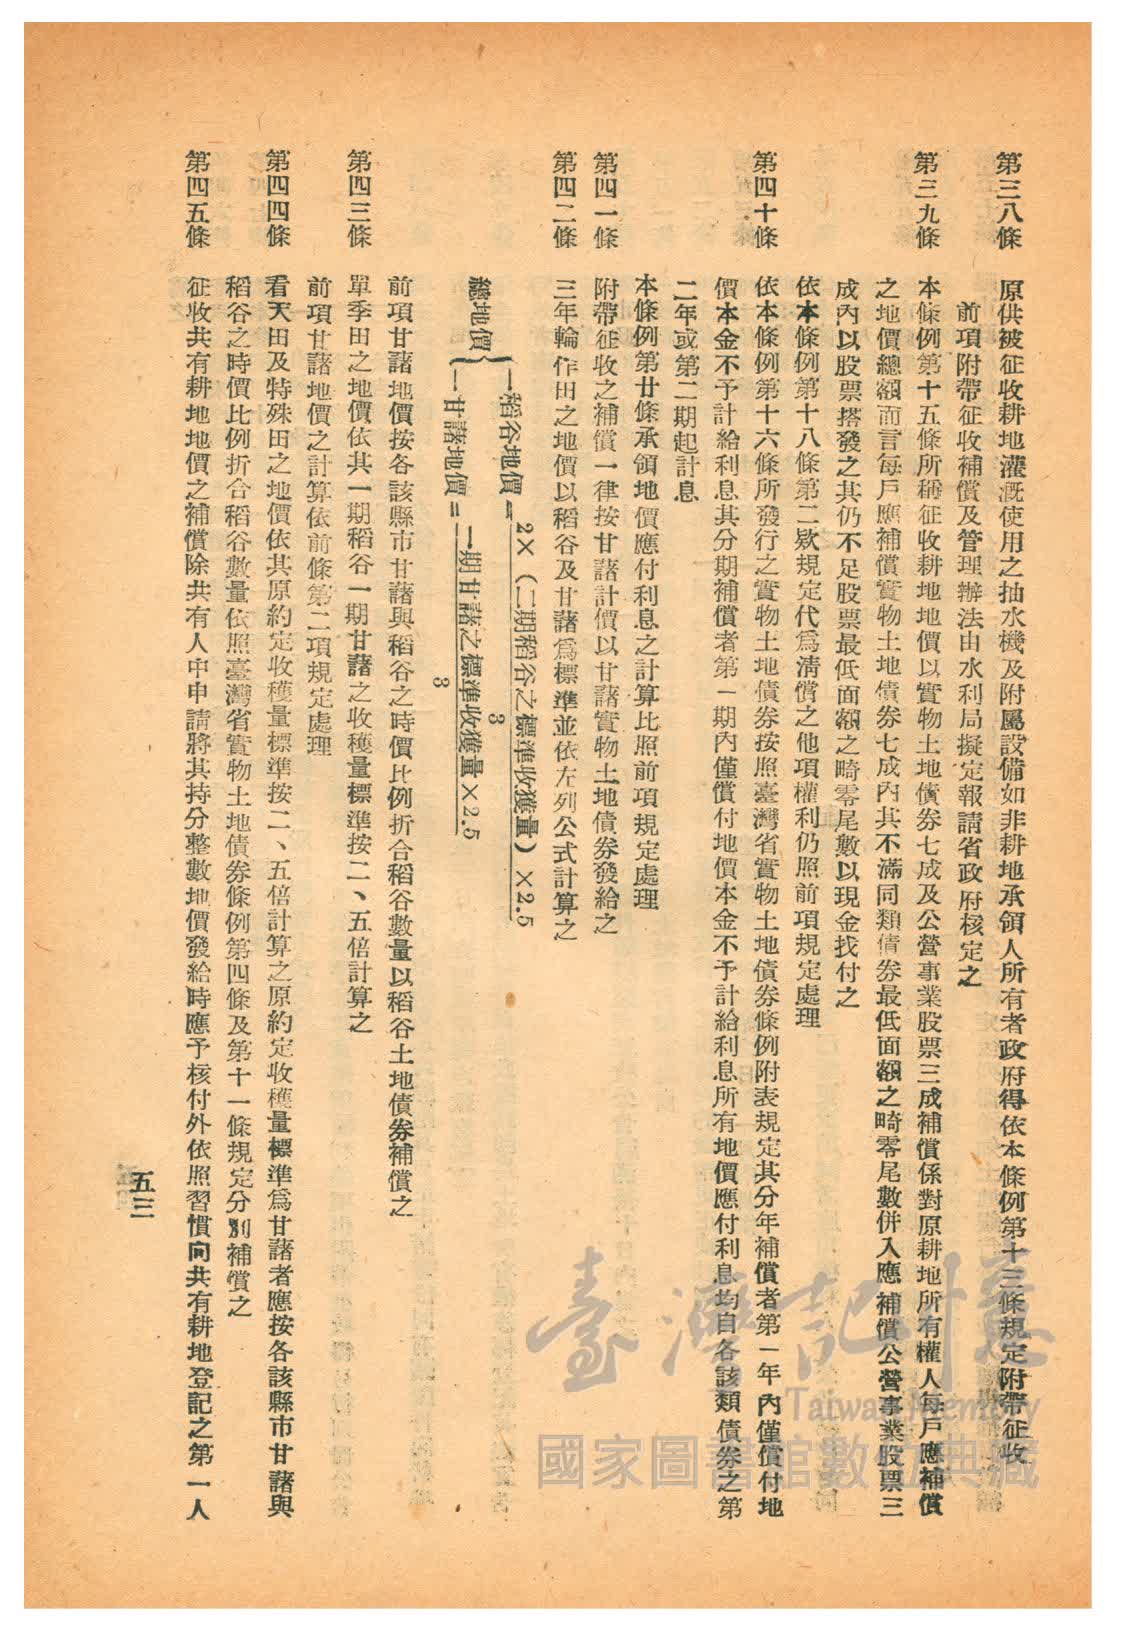 第三八條　原供被征收耕地灌溉使用之抽水機及附屬設備如非耕地承領人所有者政府得依本條例第十三條規定附帶征收
前項附帶征收補償及管理辦法由水利局擬定報請省政府核定之
第三九條　本條例第十五條所稱征收耕地地價以實物土地債券七成及公營事業股票三成補償係對原耕地所有權人每戶應補償
之地價總額而言每戶應補償實物土地債券七成內其不滿同類債券最低面額之畸零尾數併入應補償公營事業股票三
成內以股票搭發之其仍不足股票最低面額之畸零尾數以現金找付之
依本條例第十八條第二欵規定代爲清償之他項權利仍照前項規定處理
第四十條　依本條例第十六條所發行之實物土地債券按照臺灣省實物土地債券條例附表規定其分年補償者第一年內僅償付地
價本金不予計給利息其分期補償者第一期內僅償付地價本金不予計給利息所有地價應付利息均自各該類債券之第
二年或第二期起計息
本條例第廿條承領地價應付利息之計算比照前項規定處理
第四一條　附帶征收之補償一律按甘藷計價以甘藷實物土地債券發給之
第四二條　三年輪作田之地價以稻谷及甘藷爲標準並依左列公式計算之
總地價{
一稻谷地價＝2×（二期稻谷之標準收獲量）×2.5
3
一甘諸地價＝一期甘諸之標準收獲量×2.5
3
前項甘諸地價按各該縣市甘藷與稻谷之時價比例折合稻谷數量以稻谷土地債券補償之
第四三條　單季田之地價依其一期稻谷一期甘藷之收穫量標準按二、五倍計算之
前項甘諸地價之計算依前條第二項規定處理
第四四條　看天田及特殊田之地價依其原約定收穫量標準按二、五倍計算之原約定收穫量標準爲甘藷者應按各該縣市甘藷與
稻谷之時價比例折合稻谷數量依照臺灣省實物土地債券條例第四條及第十一條規定分別補償之
第四五條　征收共有耕地地價之補償除共有人中申請將其持分整數地價發給時應予核付外依照習慣向共有耕地登記之第一人
五三
臺灣記憶
Taiwan Memory
國家圖書館數位典藏